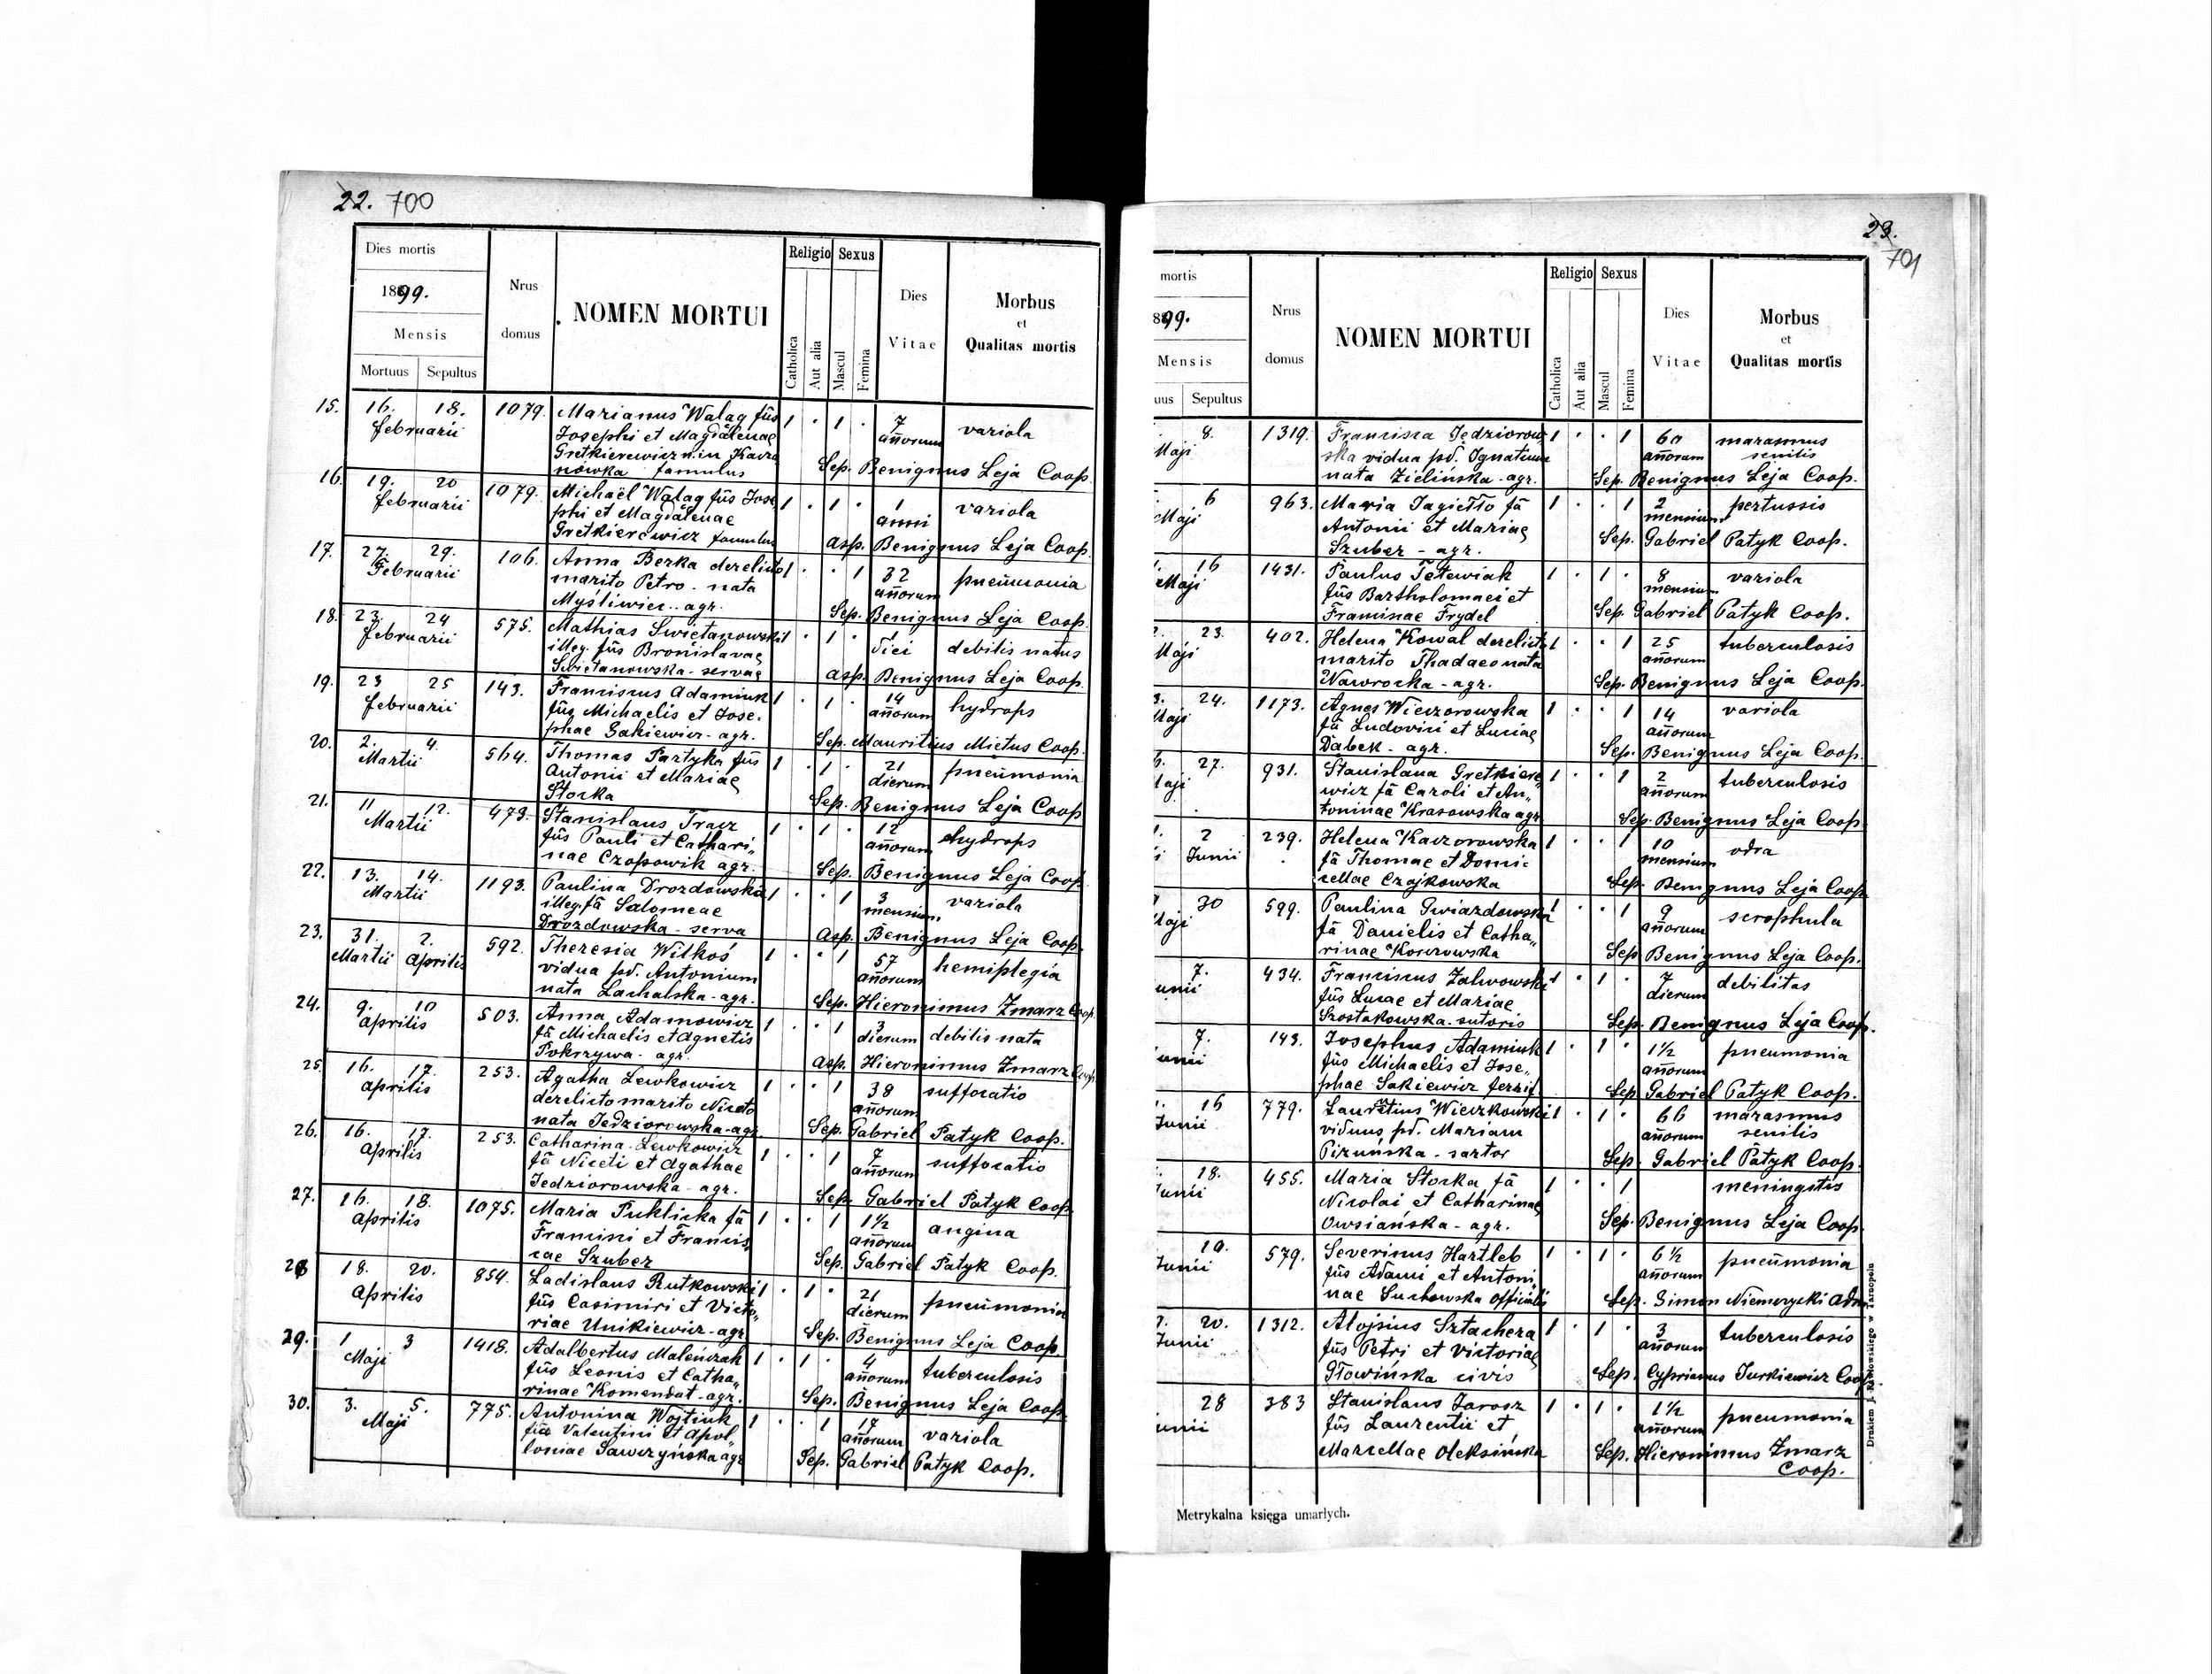 22. 700
Dies mortis
1899.
Mensis
Mortuus Sepultus
Nrus domus
NOMEN MORTUI
Religio Sexus
Catholica Aut alia Mascul Femina
Dies Vitae
Morbus
et
Qualitas mortis
15. 16. 18. 1079. Marianus Walag fūs 1 . 1 . 7 variola
februarii Josephi et Magdalenae añorum
Gretkierewicz n. in Kacza
nówka famulus Sep. Benignus Leja Coop.
16. 19. 20 1079. Michaël Walag fūs Jose 1 . 1 . 1 variola
februarii phi et Magdalenae anni
Gretkierewicz famulus asp. Benignus Leja Coop.
17. 27. 29. 106. Anna Berka derelicta 1 . . 1 32 pneumonia
Februarii marito Petro. nata añorum
Myśliwiec.. agr. Sep. Benignus Leja Coop.
18. 23. 24 575. Mathias Swietanowski 1 . 1 . 1 debilis natus
februarii illeg. fūs Bronislavae diei
Swietanowska - servae asp. Benignus Leja Coop.
19. 23 25 143. Franciscus Adamiuk 1 . 1 . 14 hydrops
februarii fūs Michaelis et Jose-
phae Sakiewicz - agr. añorum
Sep. Mauritius Mietus Coop.
20. 2. 4. 564. Thomas Partyka fūs 1 . 1 . 21 pneumonia
Martii Antonii et Mariae dierum
Stocka Sep. Benignus Leja Coop
21. 11 12. 473. Stanislaus Tracz 1 . 1 . 12 hydrops
Martii fūs Pauli et Cathari„ añorum
nae Czopowik agr. Sep. Benignus Leja Coop
22. 13. 14. 1193. Paulina Drozdowska 1 . . 1 3 variola
Martii illeg. fā Salomeae mensium
Drozdowska - serva Asp. Benignus Leja Coop.
23. 31. 2. 592. Theresia Wilkoś 1 . . 1 57 hemiplegia
Martii Aprilis vidua pd. Antonium añorum
nata Lachalska - agr. Sep. Hieronimus Zmarz Coop.
24. 9. 10 503. Anna Adamowicz 1 . . 1 3 debilis nata
Aprilis fā Michaelis et Agnetis dierum
Pokrzywa - agr. Asp. Hieronimus Zmarz Coop
25. 16. 17. 253. Agatha Lewkowicz 1 . . 1 38 suffocatio
Aprilis derelicto marito Niceto añorum
nata Jedziorowska - agr. Sep. Gabriel Patyk Coop.
26. 16. 17. 253. Catharina Lewkowicz 1 . . 1 7 suffocatio
Aprilis fā Niceti et Agathae añorum
Jedziorowska - agr. Sep. Gabriel Patyk Coop
27. 16. 18. 1075. Maria Puklicka fā 1 . . 1 1½ angina
Aprilis Francisci et Francis„ añorum
cae Szuber Sep. Gabriel Patyk Coop.
28 18. 20. 854. Ladislaus Rutkowski 1 . 1 . 21 pneumonia
Aprilis fūs Casimiri et Victo„ dierum
riae Unikiewicz - agr Sep. Benignus Leja Coop.
29. 1 3 1418. Adalbertus Maleńczak 1 . 1 . 4 tuberculosis
Maji fūs Leonis et Catha„ añorum
rinae Komendat - agr. Sep. Benignus Leja Coop
30. 3. 5. 775. Antonina Wojtiuk 1 . . 1 17 variola
Maji fia Valentini et Apol„ añorum
loniae Sawczyńska agr Sep. Gabriel Patyk Coop.
23.
701
mortis
899.
Mensis
uus Sepultus
Nrus domus
NOMEN MORTUI
Religio Sexus
Catholica Aut alia Mascul Femina
Dies Vitae
Morbus
et
Qualitas mortis
8. 1319. Francisca Jedziorow 1 . . 1 60 marasmus
Maji ska vidua pd. Ignatium añorum senilis
nata Zielińska - agr. Sep. Benignus Leja Coop.
6 963. Maria Jagiełło fā 1 . . 1 2 pertussis
Maji Antonii et Mariae mensium
Szuber - agr. Sep. Gabriel Patyk Coop.
16 1431. Paulus Tetewiak 1 . 1 . 8 variola
Maji fūs Bartholomaei et mensium
Franciscae Frydel Sep. Gabriel Patyk Coop.
23. 402. Helena Kowal derelicto 1 . . 1 25 tuberculosis
Maji marito Thadaeo nata añorum
Nawrocka - agr. Sep. Benignus Leja Coop.
24. 1173. Agnes Wieczorowska 1 . . 1 14 variola
Maji fā Ludovici et Luciae añorum
Dabek - agr. Sep. Benignus Leja Coop.
27. 931. Stanislaua Gretkiere„ 1 . . 1 2 tuberculosis
aji wicz fā Caroli et An„ añorum
toninae Krasowska agr Sep. Benignus Leja Coop.
2 239. Helena Kaczorowska 1 . . 1 10 odra
Junii fā Thomae et Domi- mensium
cellae Czajkowska Sep. Benignus Leja Coop
30 599. Paulina Gwiazdowska 1 . . 1 9 scrophula
Maji fā Danielis et Catha„ añorum
rinae Korczowska Sep Benignus Leja Coop.
7. 434. Franciscus Zalwowski 1 . 1 . 7 debilitas
unii fūs Lucae et Mariae dierum
Szostakowska - sutoris Sep. Benignus Leja Coop.
7. 143. Josephus Adamiuk 1 . 1 . 1½ pneumonia
unii fūs Michaelis et Jose„ añorum
phae Sakiewicz Sep Gabriel Patyk Coop.
16 779. Laurentius Wieczkowski 1 . 1 . 66 marasmus
Junii viduus pd. Mariam añorum senilis
Pizuńska - sartor Sep. Gabriel Patyk Coop.
18. 455. Maria Stocka fā 1 . . 1 meningitis
Junii Nicolai et Catharinae
Owsiańska - agr. Sep. Benignus Leja Coop
19. 579. Severinus Hartleb 1 . 1 . 6½ pneumonia
Junii fūs Adami et Antoni„ añorum
nae Suchowska officialis Sep. Simon Niemczycki Adm.
20. 1312. Alojsius Sztachera 1 . 1 . 3 tuberculosis
Junii fūs Petri et Victoriae añorum
Głowińska civis Sep. Cyprianus Jurkiewicz Coop.
28 383 Stanislaus Jarosz 1 . 1 . 1½ pneumonia
unii fūs Laurentii et añorum
Marcellae Oleksińska Sep. Hieronimus Zmarz
Coop.
Metrykalna księga umarłych.
Drukiem J. Pawłowskiego w Tarnopolu